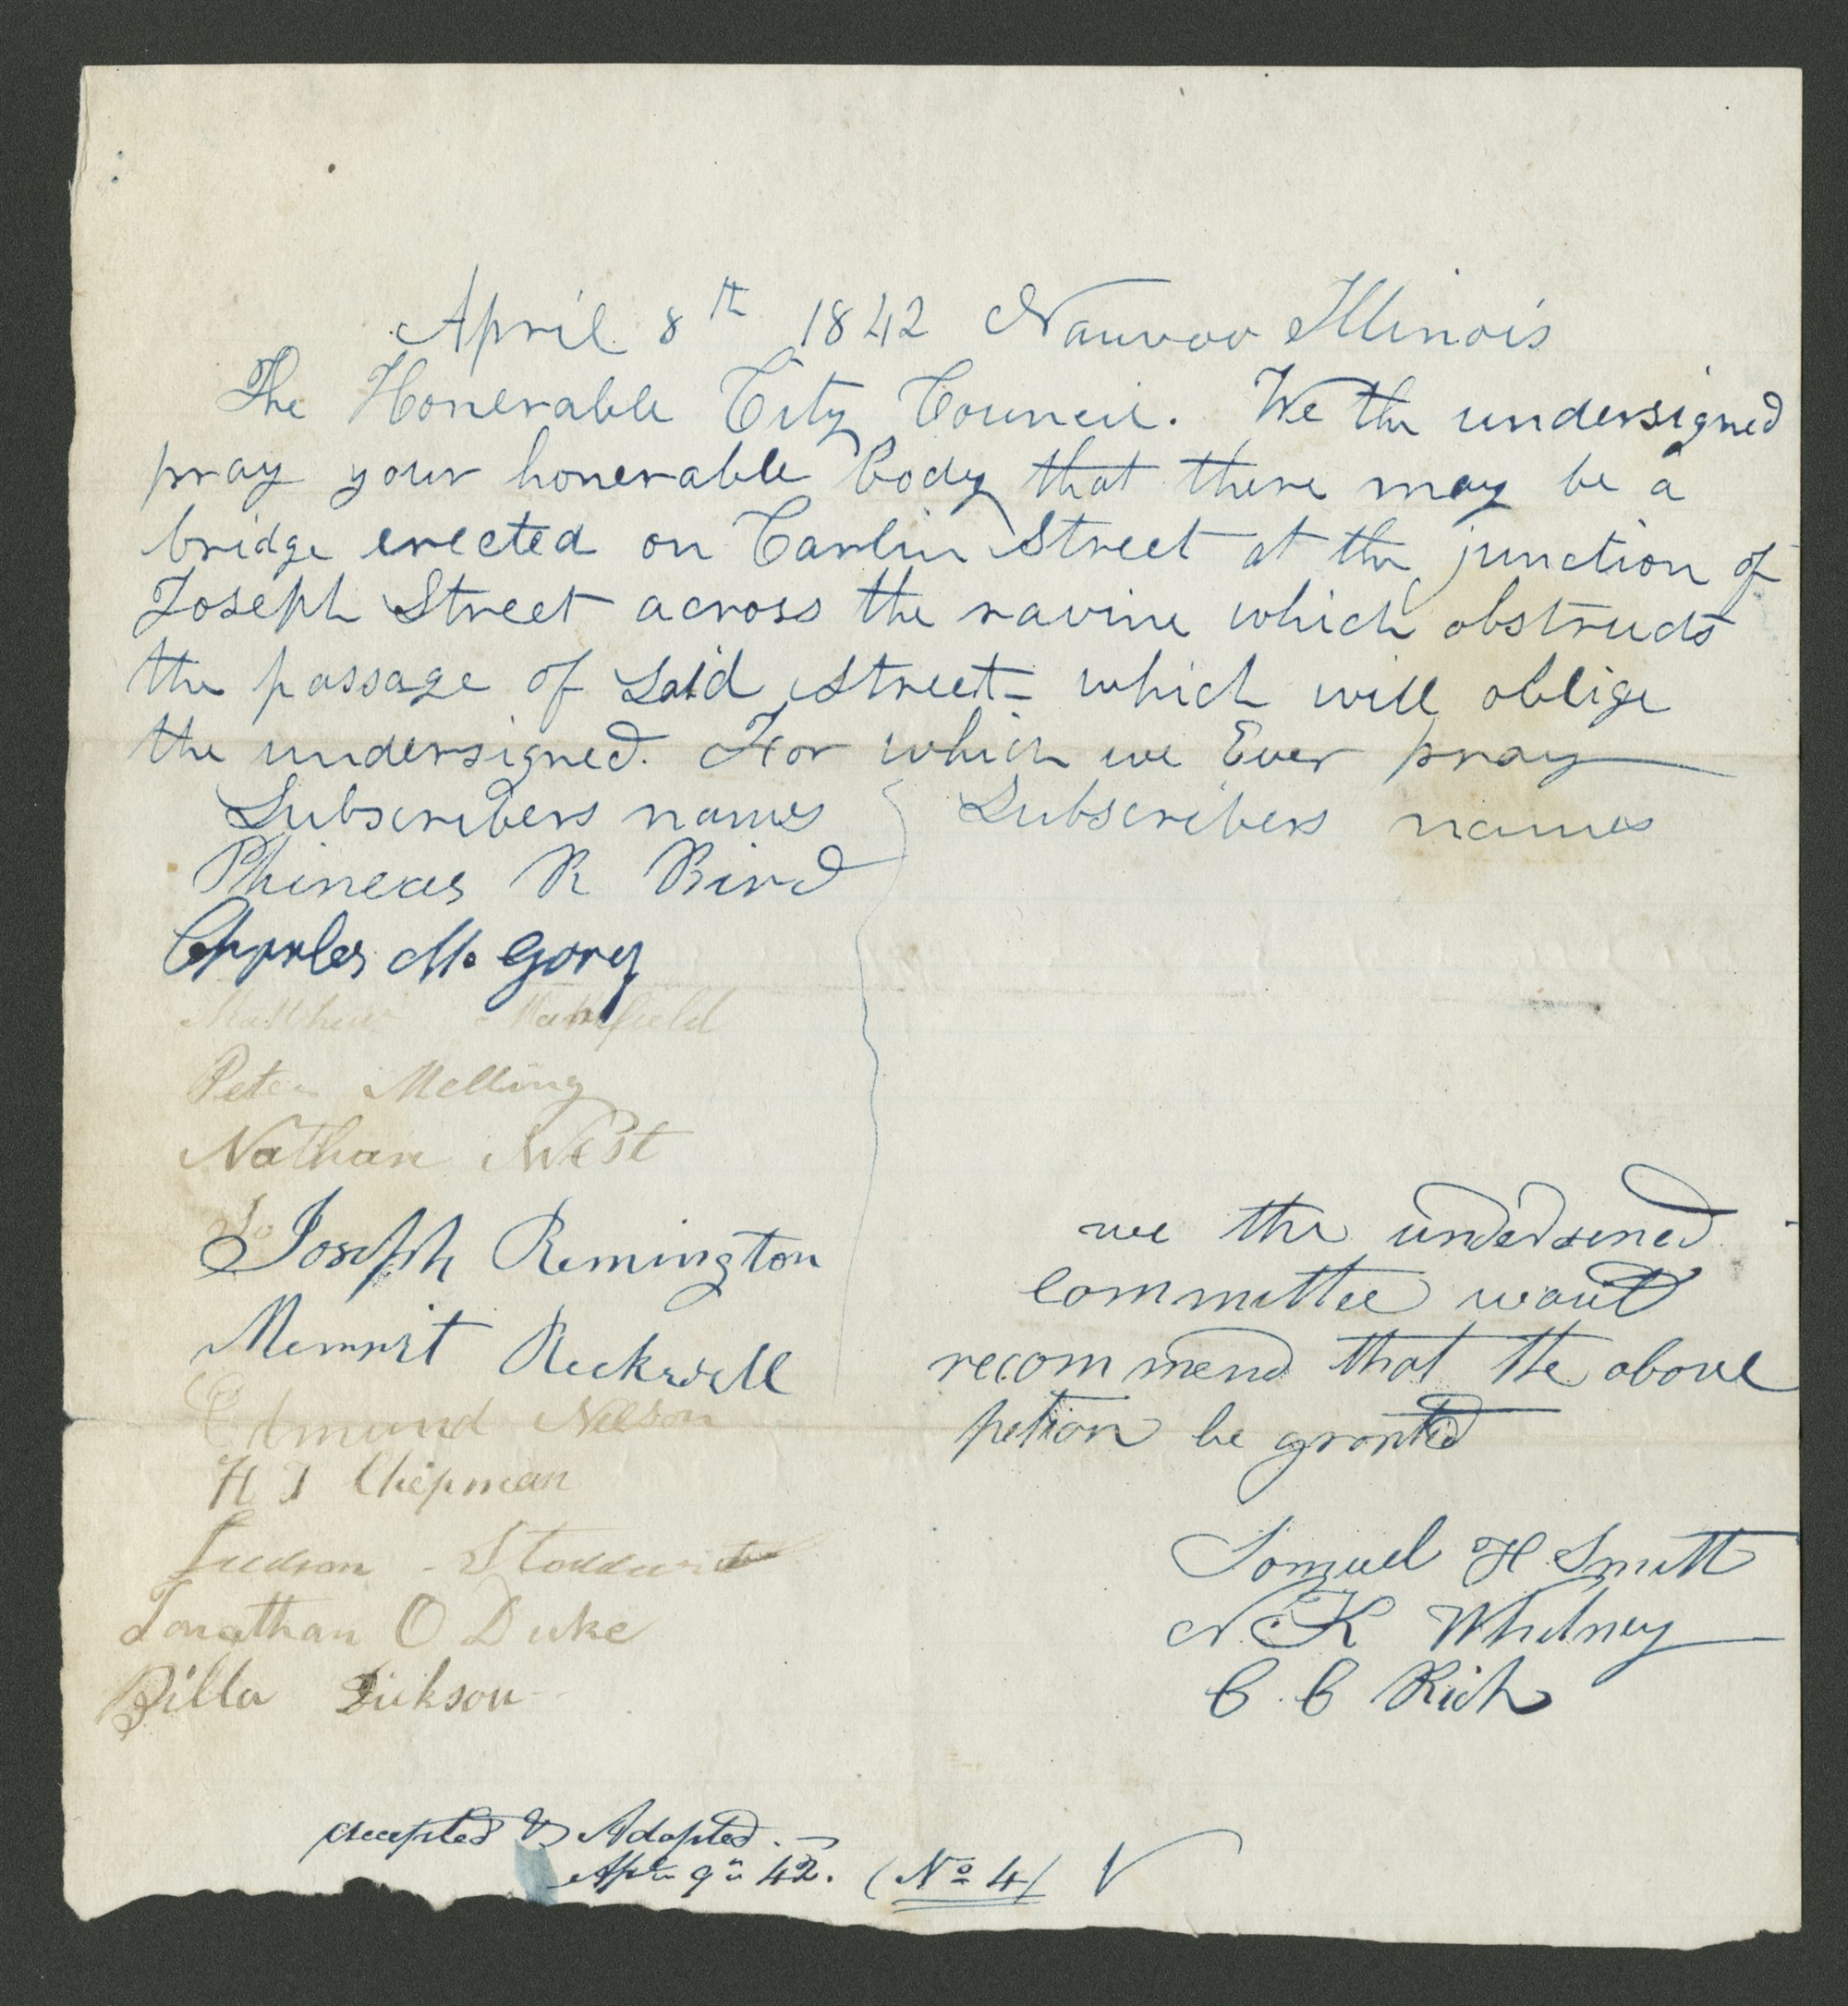 April 8th 1842 Nauvoo Illinois
The Honerable City Council. We the undersigned
pray your honerable body that there may be a
bridge erected on Carlin Street at the junction of
Joseph Street across the ravine which obstructs
the passage of said street– which will oblige
the undersigned. For which we Ever pray
Subscribers names
Phineas R Bird
Charles M. Gory
Matthew Mansfield
Peter Melling
Nathan West
Jo
Joseph Remington
Merrit Rockwell
Edmund Nelson
H J Chipman
Judson Stoddard
Jonathan O Duke
Billa Dickson
Subscribers names
we the undersined
committee would
recommend that the above
petion be granted
Samuel H. Smith
N. K Whitney
C. C Rich
accepted & Adopted.
Apl. 9th 42. (No 4)